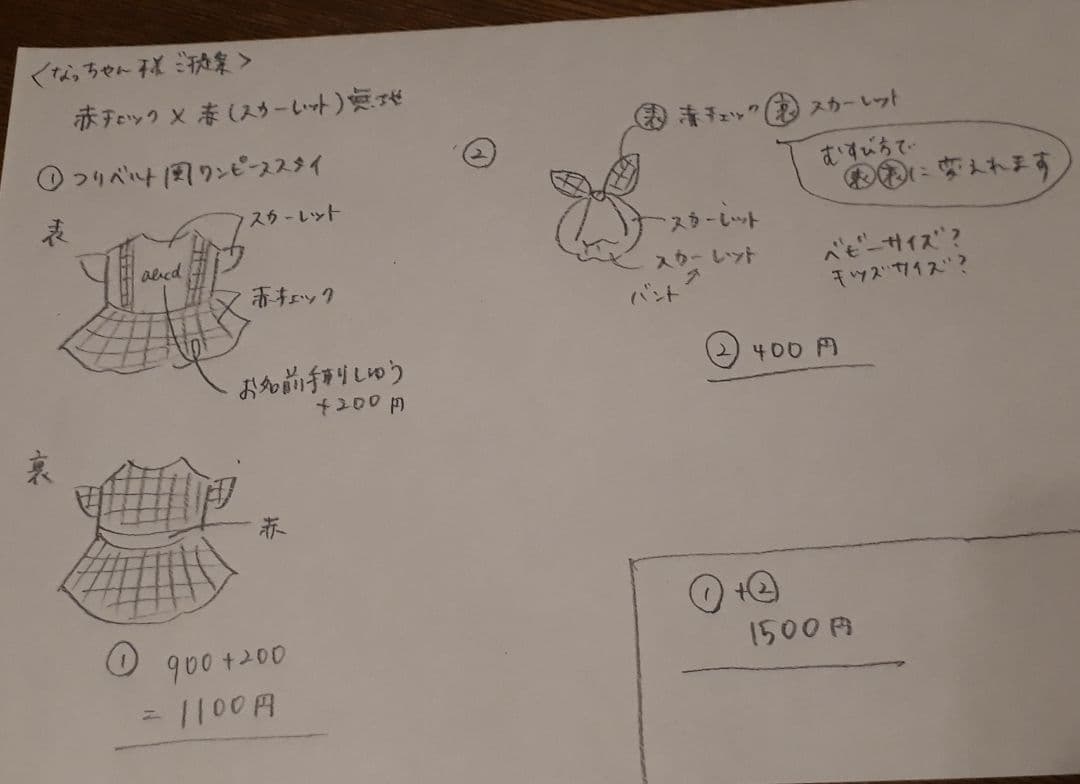 <なっちゃん様ご提案>
赤チェック×赤(スカーレット)無地
① つりベルト風ワンピーススタイ
表
スカーレット
abcd
赤チェック
お名前手刺しゅう
+200円
裏
赤
① 900+200
= 1100円
②
表 赤チェック 裏 スカーレット
むすび方で
表裏に変えれます
スカーレット
スカーレット
バンド
ベビーサイズ?
キッズサイズ?
② 400円
①+②
1500円